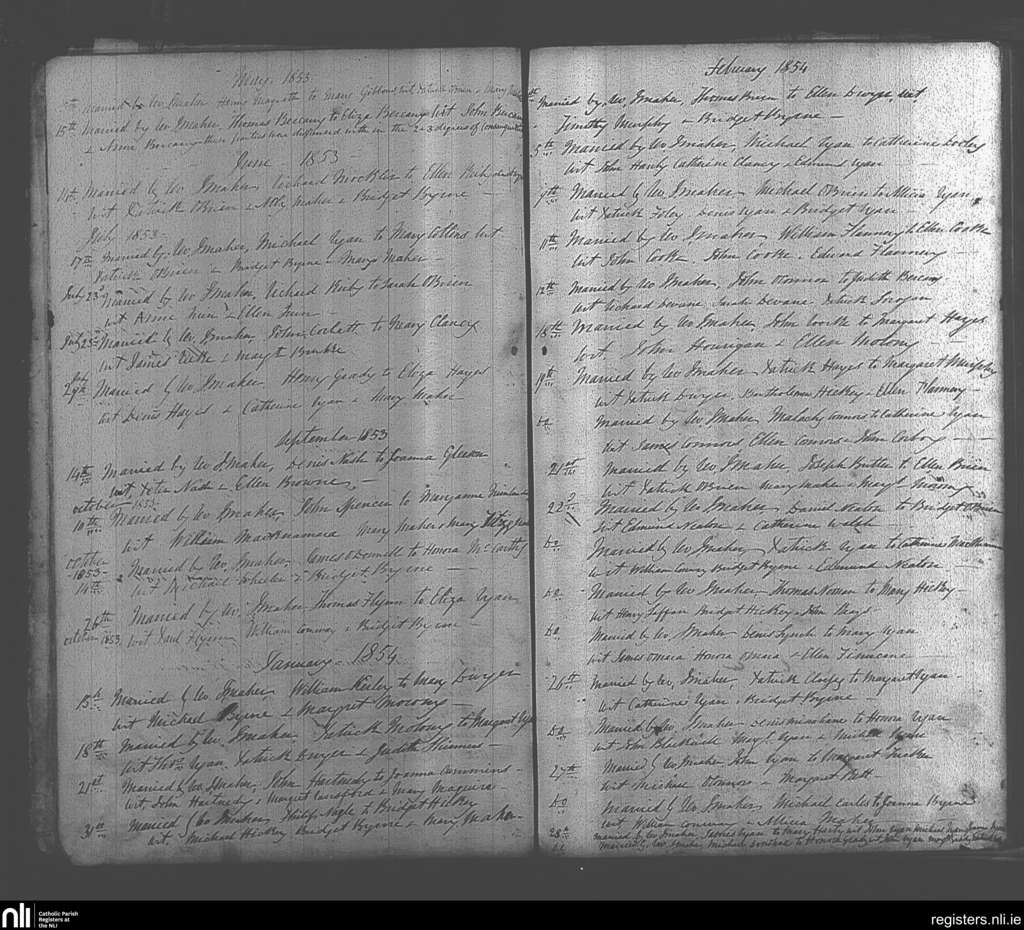 May 1853
Married by Wm Maher Henry Magrath to Mary Gibbons wit Patrick OBrien & Mary
15th Married by Wm Maher Thomas Bercany to Eliza Bercany wit John
& Anne Bercany these parties were dispensed with in the 2 & 3 degrees of Consanguinity
June 1853
Married by Wm Maher Richard Mockler to Ellen Kirby
wit Patrick OBrien & Maher & Bridget Byrne
July 1853
17th Married by Wm Maher, Michael Ryan to Mary Collins wit
Patrick OBrien & Bridget Byrne & Mary Maher
July 23d Married by Wm Maher, Richard Kirby to Sarah OBrien
wit Anne & Ellen
July 25 Married by Wm Maher John Corbett to Mary Clancy
wit James & Margt Burke
29th Married by Wm Maher Henry Grady to Eliza Hayes
wit Denis Hayes & Catherine Ryan & Mary Maher
September 1853
14th Married by Wm Maher, Denis Nash to Joanna Gleeson
wit, Peter Nash & Ellen Browne
October 1853
10th Married by Wm Maher, John Spencer to Maryanne
wit William Macknamara Mary Maher & Mary Fitzgerald
October 1853 14th Married by Wm Maher, James ODonnell to Honora McCarthy
wit Michael Wheeler & Bridget Byrne
26th Married by Wm Maher Thomas Flynn to Eliza Ryan
October 1853, wit Paul Flynn William Conway & Bridget Byrne
January 1854
15th Married by Wm Maher William Keeley to Mary Dwyer
wit Michael Byrne & Margret
18th Married by Wm Maher Patrick Molony to Margaret Ryan
wit Thos Ryan, Patrick Dwyer & Judith Skinners
21st Married by Wm Maher, John Hartnedy to Joanna Cummins
wit John Hartnedy, Margret & Mary Maguire
31st Married by Wm Maher Philip Nagle to Bridget Hickey
wit, Michael Hickey Bridget Byrne & Mary Maher
February 1854
Married by, Wm, Maher, Thomas Brien to Ellen Dwyer, wit,
Timothy Murphy & Bridget Byrne
5th Married by Wm Maher, Michael Ryan to Catherine Dooley
wit John Hardy Catherine Clancy & Edmund Ryan
7th Married by Wm Maher Michael OBrien to Alicia Ryan
wit Patrick Foley Denis Ryan & Bridget Ryan
11th Married by Wm Maher, William Flannery to Ellen Cooke
wit John Cooke, John Cooke, Edward Flannery
12th Married by Wm Maher, John OConnor to Judith
wit Richard Devane Sarah Devane Patrick Grogan
18th Married by Wm Maher John Cooke to Margaret Hayes
wit. John Hourigan & Ellen Molony
19th Married by Wm Maher Patrick Hayes to Margaret Murphy
wit Patrick Dwyer, Bartholomew Hickey & Ellen Flannery
do Married by Wm Maher Malachy Connors to Catherine Ryan
wit James Connors Ellen Connors & John
21st Married by Wm Maher, Joseph Butler to Ellen Brien
wit Patrick OBrien Mary Maher & Margt
22d Married by Wm Maher Daniel Neaton to Bridget OBrien
wit Edmund Neaton & Catherine Walsh
do Married by Wm Maher Patrick Ryan to Catherine
wit William Conway Bridget Byrne & Edmund Neaton
do Married by Wm Maher Thomas Noonan to Mary Hickey
wit Henry Bridget Hickey & John Hays
do Married by Wm, Maher Denis Lynch to Mary Ryan
wit James OMara Honora OMara & Ellen Finucane
26th Married by Wm, Maher, Patrick to Margaret Ryan
wit Catherine Ryan & Bridget Byrne
do Married by Wm, Maher Denis Minahane to Honora Ryan
wit John Mary Ryan & Michael
27th Married by Wm Maher John Ryan to Margaret
wit Michael OConnor & Margaret
do Married by Wm Maher Michael to Joanna Byrne
wit William Conway & Alicia Maher
28th Married by Wm Maher, James Ryan to Mary Hardy wit John Ryan Michael
do Married by, Wm Maher Michael to Honora Grady wit John Ryan
nli
Catholic Parish
Registers at
the NLI
registers.nli.ie